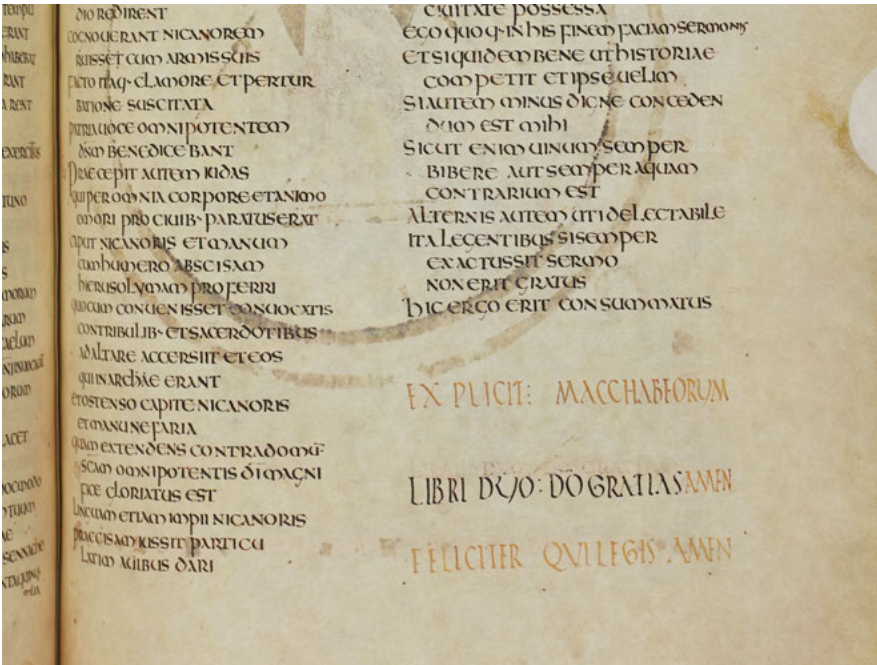 DIO REDIRENT
COGNOUERANT NICANOREM
RUISSET CUM ARMIS SUIS
FACTO ITAQ· CLAMORE ET PERTUR
BATIONE SUSCITATA
PATRIA UOCE OMNIPOTENTEM
DN̄M BENEDICEBANT
PRAECEPIT AUTEM IUDAS
QUI PER OMNIA CORPORE ET ANIMO
EMORI PRO CIUIB· PARATUS ERAT
CAPUT NICANORIS ET MANUM
CUM HUMERO ABSCISAM
HIERUSOLYMAM PROFERRI
QUO CUM CONUENISSET CONUOCATIS
CONTRIBULIB· ET SACERDOTIBUS
AD ALTARE ACCERSIIT ET EOS
QUI IN ARCHAE ERANT
ET OSTENSO CAPITE NICANORIS
ET MANU NEFARIA
QUAM EXTENDENS CONTRA DOMŪ
SCAM OMNIPOTENTIS DĪ MAGNI
FICE GLORIATUS EST
LINGUAM ETIAM IMPII NICANORIS
PRAECISAM IUSSIT PARTICU
LATIM AUIBUS DARI
CIUITATE POSSESSA
EGO QUOQ· IN HIS FINEM FACIAM SERMONIS
ET SI QUIDEM BENE UT HISTORIAE
COMPETIT ET IPSE UELIM
SI AUTEM MINUS DIGNE CONCEDEN
DUM EST MIHI
SICUT ENIM UINUM SEMPER
BIBERE AUT SEMPER AQUAM
CONTRARIUM EST
ALTERNIS AUTEM UTI DELECTABILE
ITA LEGENTIBUS SI SEMPER
EXACTUS SIT SERMO
NON ERIT GRATUS
HIC ERGO ERIT CONSUMMATUS
EXPLICIT: MACCHABEORUM
LIBRI DUO: DŌ GRATIAS AMEN
FELICITER QVI LEGIS AMEN